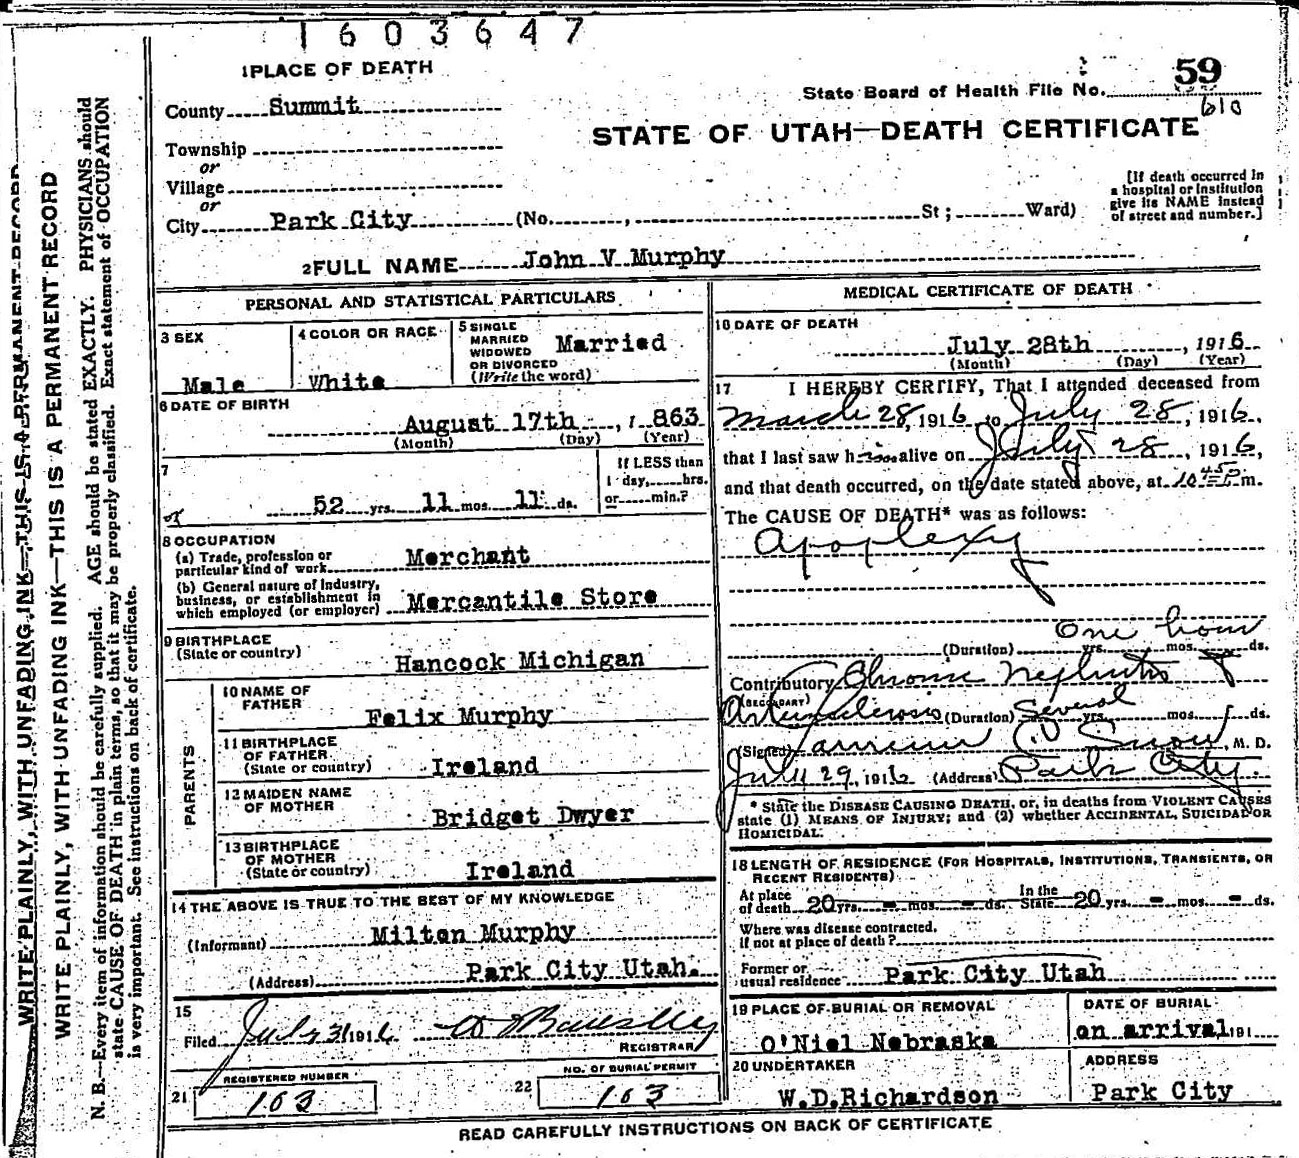 1603647
1 PLACE OF DEATH
59
State Board of Health File No.
610
County Summit
STATE OF UTAH—DEATH CERTIFICATE
Township
or
Village
or
City Park City (No. , St; Ward)
[If death occurred in
a hospital or institution
give its NAME instead
of street and number.]
2 FULL NAME John V Murphy
PERSONAL AND STATISTICAL PARTICULARS
3 SEX
Male
4 COLOR OR RACE
White
5 SINGLE
MARRIED
WIDOWED
OR DIVORCED
(Write the word)
Married
6 DATE OF BIRTH
August 17th , 1 863
(Month) (Day) (Year)
7
52 yrs. 11 mos. 11 ds.
If LESS than
1 day, hrs.
or min.?
8 OCCUPATION
(a) Trade, profession or
particular kind of work Merchant
(b) General nature of Industry,
business, or establishment in
which employed (or employer) Mercantile Store
9 BIRTHPLACE
(State or country)
Hancock Michigan
PARENTS
10 NAME OF
FATHER
Felix Murphy
11 BIRTHPLACE
OF FATHER
(State or country) Ireland
12 MAIDEN NAME
OF MOTHER
Bridget Dwyer
13 BIRTHPLACE
OF MOTHER
(State or country) Ireland
14 THE ABOVE IS TRUE TO THE BEST OF MY KNOWLEDGE
(Informant) Milton Murphy
(Address) Park City Utah.
15
Filed July 31 1916
REGISTRAR
REGISTERED NUMBER
21 103
NO. OF BURIAL PERMIT
22 103
MEDICAL CERTIFICATE OF DEATH
16 DATE OF DEATH
July 28th , 1916
(Month) (Day) (Year)
17 I HEREBY CERTIFY, That I attended deceased from
March 28, 1916 to July 28, 1916,
that I last saw him alive on July 28, 1916,
and that death occurred, on the date stated above, at 10 45 P m.
The CAUSE OF DEATH* was as follows:
Apoplexy
One hour
(Duration) yrs. mos. ds.
Contributory Chronic Nephritis &
(SECONDARY)
Arteriosclerosis (Duration) Several yrs. mos. ds.
(Signed) Snow, M. D.
July 29, 1916 (Address) Park City.
* State the DISEASE CAUSING DEATH, or, in deaths from VIOLENT CAUSES
state (1) MEANS OF INJURY; and (2) whether ACCIDENTAL, SUICIDAL OR
HOMICIDAL.
18 LENGTH OF RESIDENCE (FOR HOSPITALS, INSTITUTIONS, TRANSIENTS, OR
RECENT RESIDENTS)
At place
of death 20 yrs. - mos. - ds. In the
State 20 yrs. - mos. - ds.
Where was disease contracted,
if not at place of death?
Former or
usual residence Park City Utah
19 PLACE OF BURIAL OR REMOVAL
O'Niel Nebraska
DATE OF BURIAL
on arrival 191
20 UNDERTAKER
W.D.Richardson
ADDRESS
Park City
READ CAREFULLY INSTRUCTIONS ON BACK OF CERTIFICATE
WRITE PLAINLY, WITH UNFADING INK—THIS IS A PERMANENT RECORD
WRITE PLAINLY, WITH UNFADING INK—THIS IS A PERMANENT RECORD
N. B.—Every item of information should be carefully supplied. AGE should be stated EXACTLY. PHYSICIANS should
state CAUSE OF DEATH in plain terms, so that it may be properly classified. Exact statement of OCCUPATION
is very important. See instructions on back of certificate.